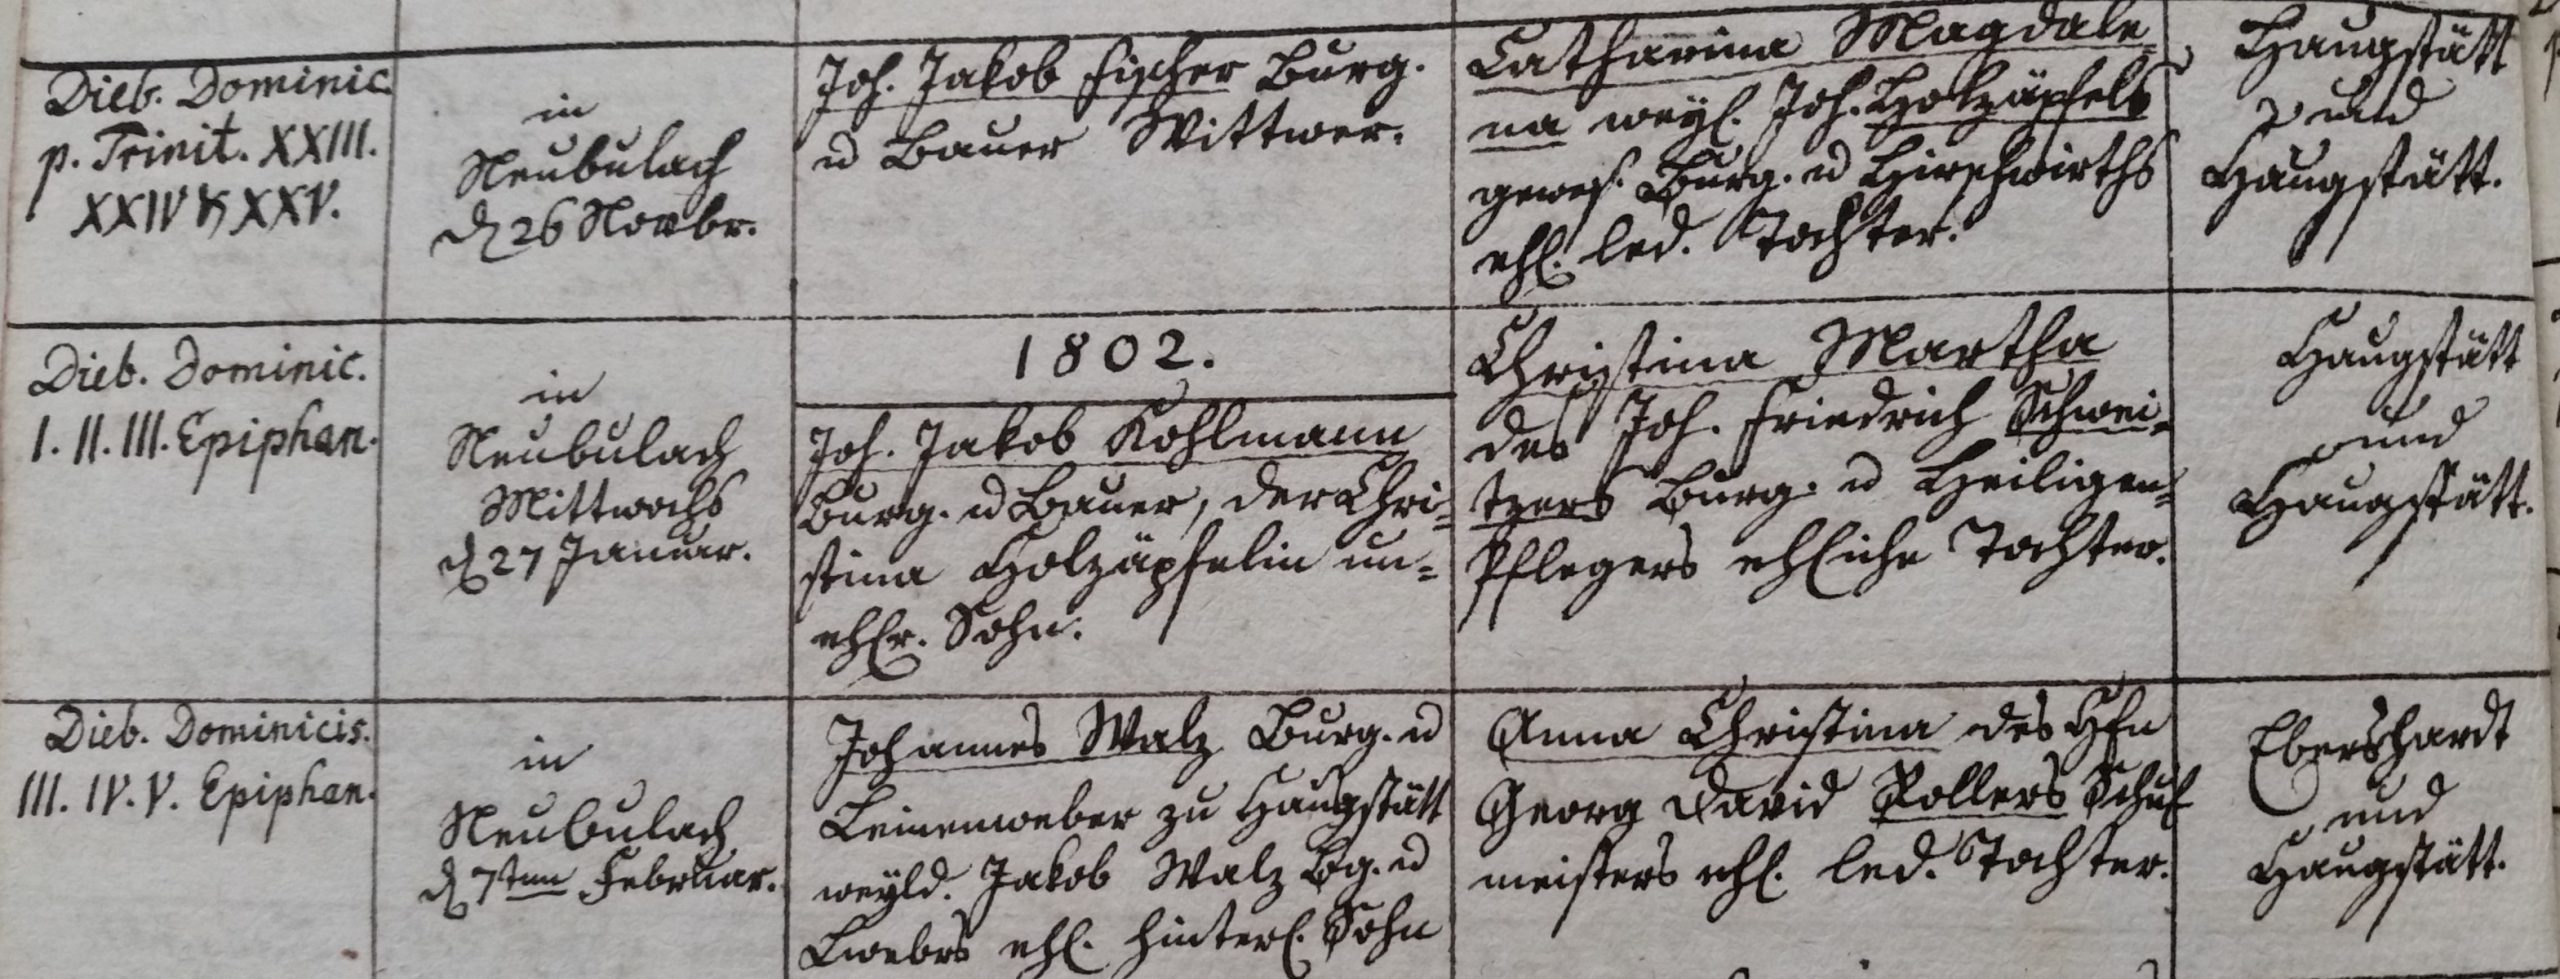 Dieb. Dominic.
p. Trinit. XXIII.
XXIV & XXV.
in
Neubulach
d. 26 Novbr.
Joh. Jakob Fischer Burg.
u Bauer Wittwer.
Catharina Magdale-
na weyl. Joh. Holzäpfels
gewes. Burg. u Hirschwirths
ehl. led. Tochter.
Haugstätt
und
Haugstätt.
Dieb. Dominic.
I. II. III. Epiphan.
in
Neubulach
Mittwochs
d. 27 Januar.
1802.
Joh. Jakob Kohlmann
Burg. u Bauer, der Chri-
stina Holzäpfelin un-
ehlr. Sohn.
Christina Martha
des Joh. Friedrich Schwei-
tzers Burg. u Heiligen-
Pflegers ehliche Tochter.
Haugstätt
und
Haugstätt.
Dieb. Dominicis.
III. IV. V. Epiphan.
in
Neubulach
d. 7ten Februar.
Johannes Walz Burg. u
Leinenweber zu Haugstätt
weyld. Jakob Walz Bg. u
Lwebrs ehl. hinterl. Sohn
Anna Christina des Hrn
Georg David Rollers Schul
meisters ehl. led. Tochter.
Ebershardt
und
Haugstätt.